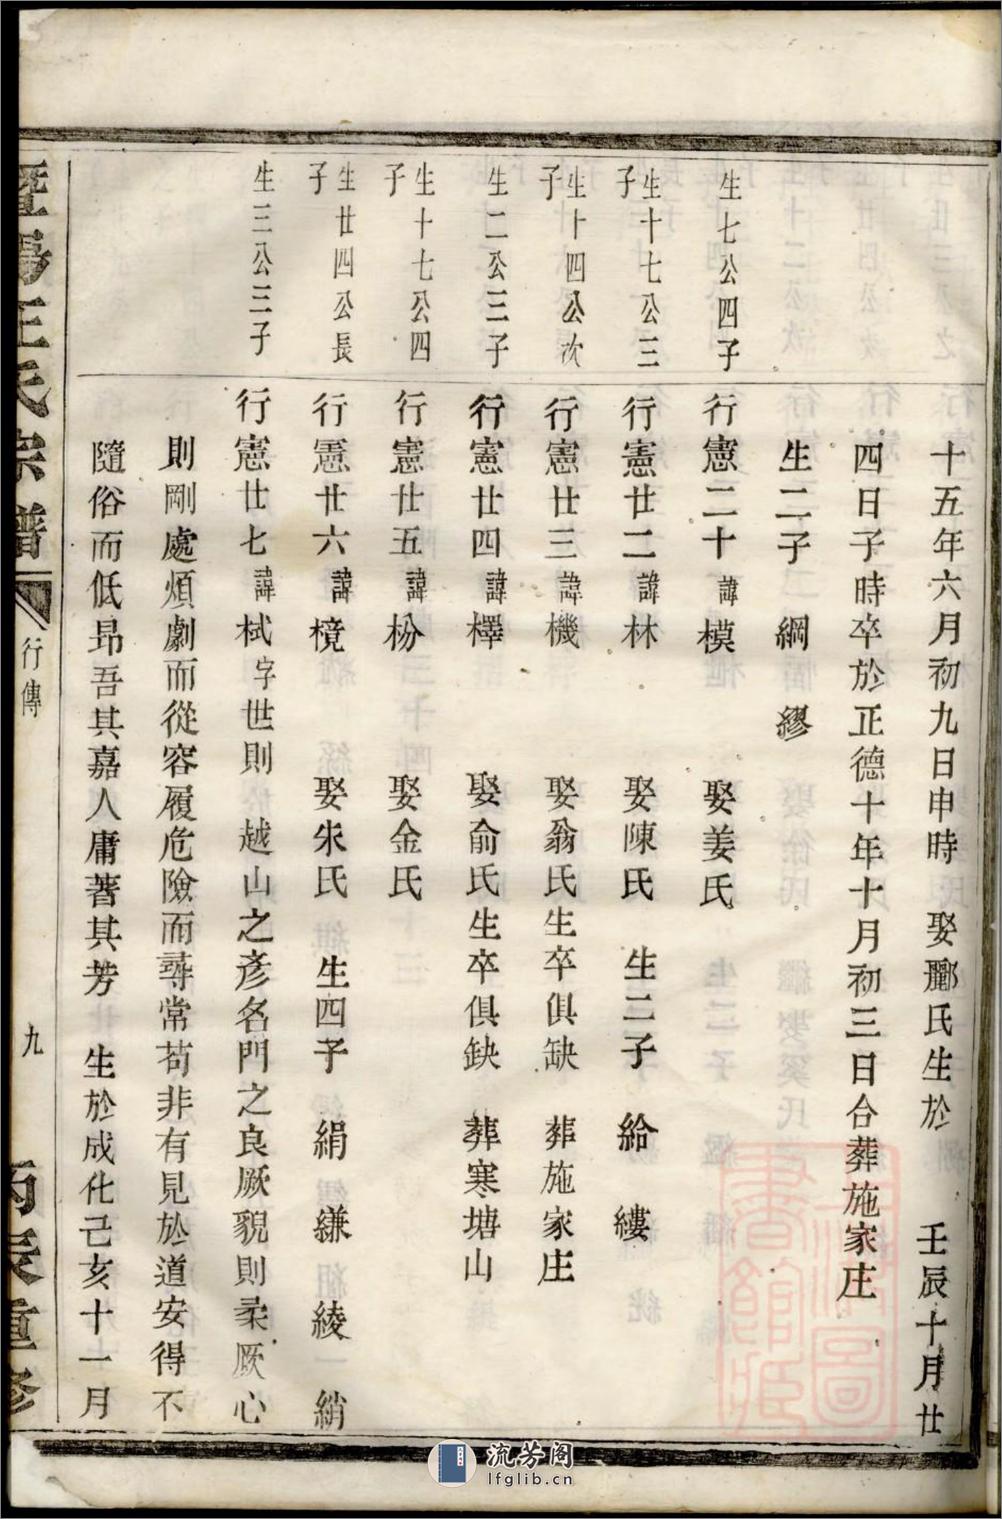 十五年六月初九日申時 娶酈氏生於 壬辰十月廿
四日子時卒於正德十年十月初三日合葬施家庄
生二子 綱 繆
生七公四子
行憲二十 諱模 娶姜氏
生十七公三子
行憲廿二 諱林 娶陳氏 生二子 給 縷
生十四公次子
行憲廿三 諱機 娶翁氏生卒俱缺 葬施家庄
生二公三子
行憲廿四 諱檡 娶俞氏生卒俱缺 葬寒塘山
生十七公四子
行憲廿五 諱枌 娶金氏
生廿四公長子
行憲廿六 諱樈 娶朱氏 生四子 絹 縑 綾 綃
生三公三子
行憲廿七 諱栻 字世則 越山之彥名門之良厥貌則柔厥心
則剛處煩劇而從容履危險而尋常苟非有見於道安得不
隨俗而低昂吾其嘉人庸著其芳 生於成化己亥十一月
暨陽王氏宗譜 行傳 九 丙辰重修
流芳阁
lfglib.cn